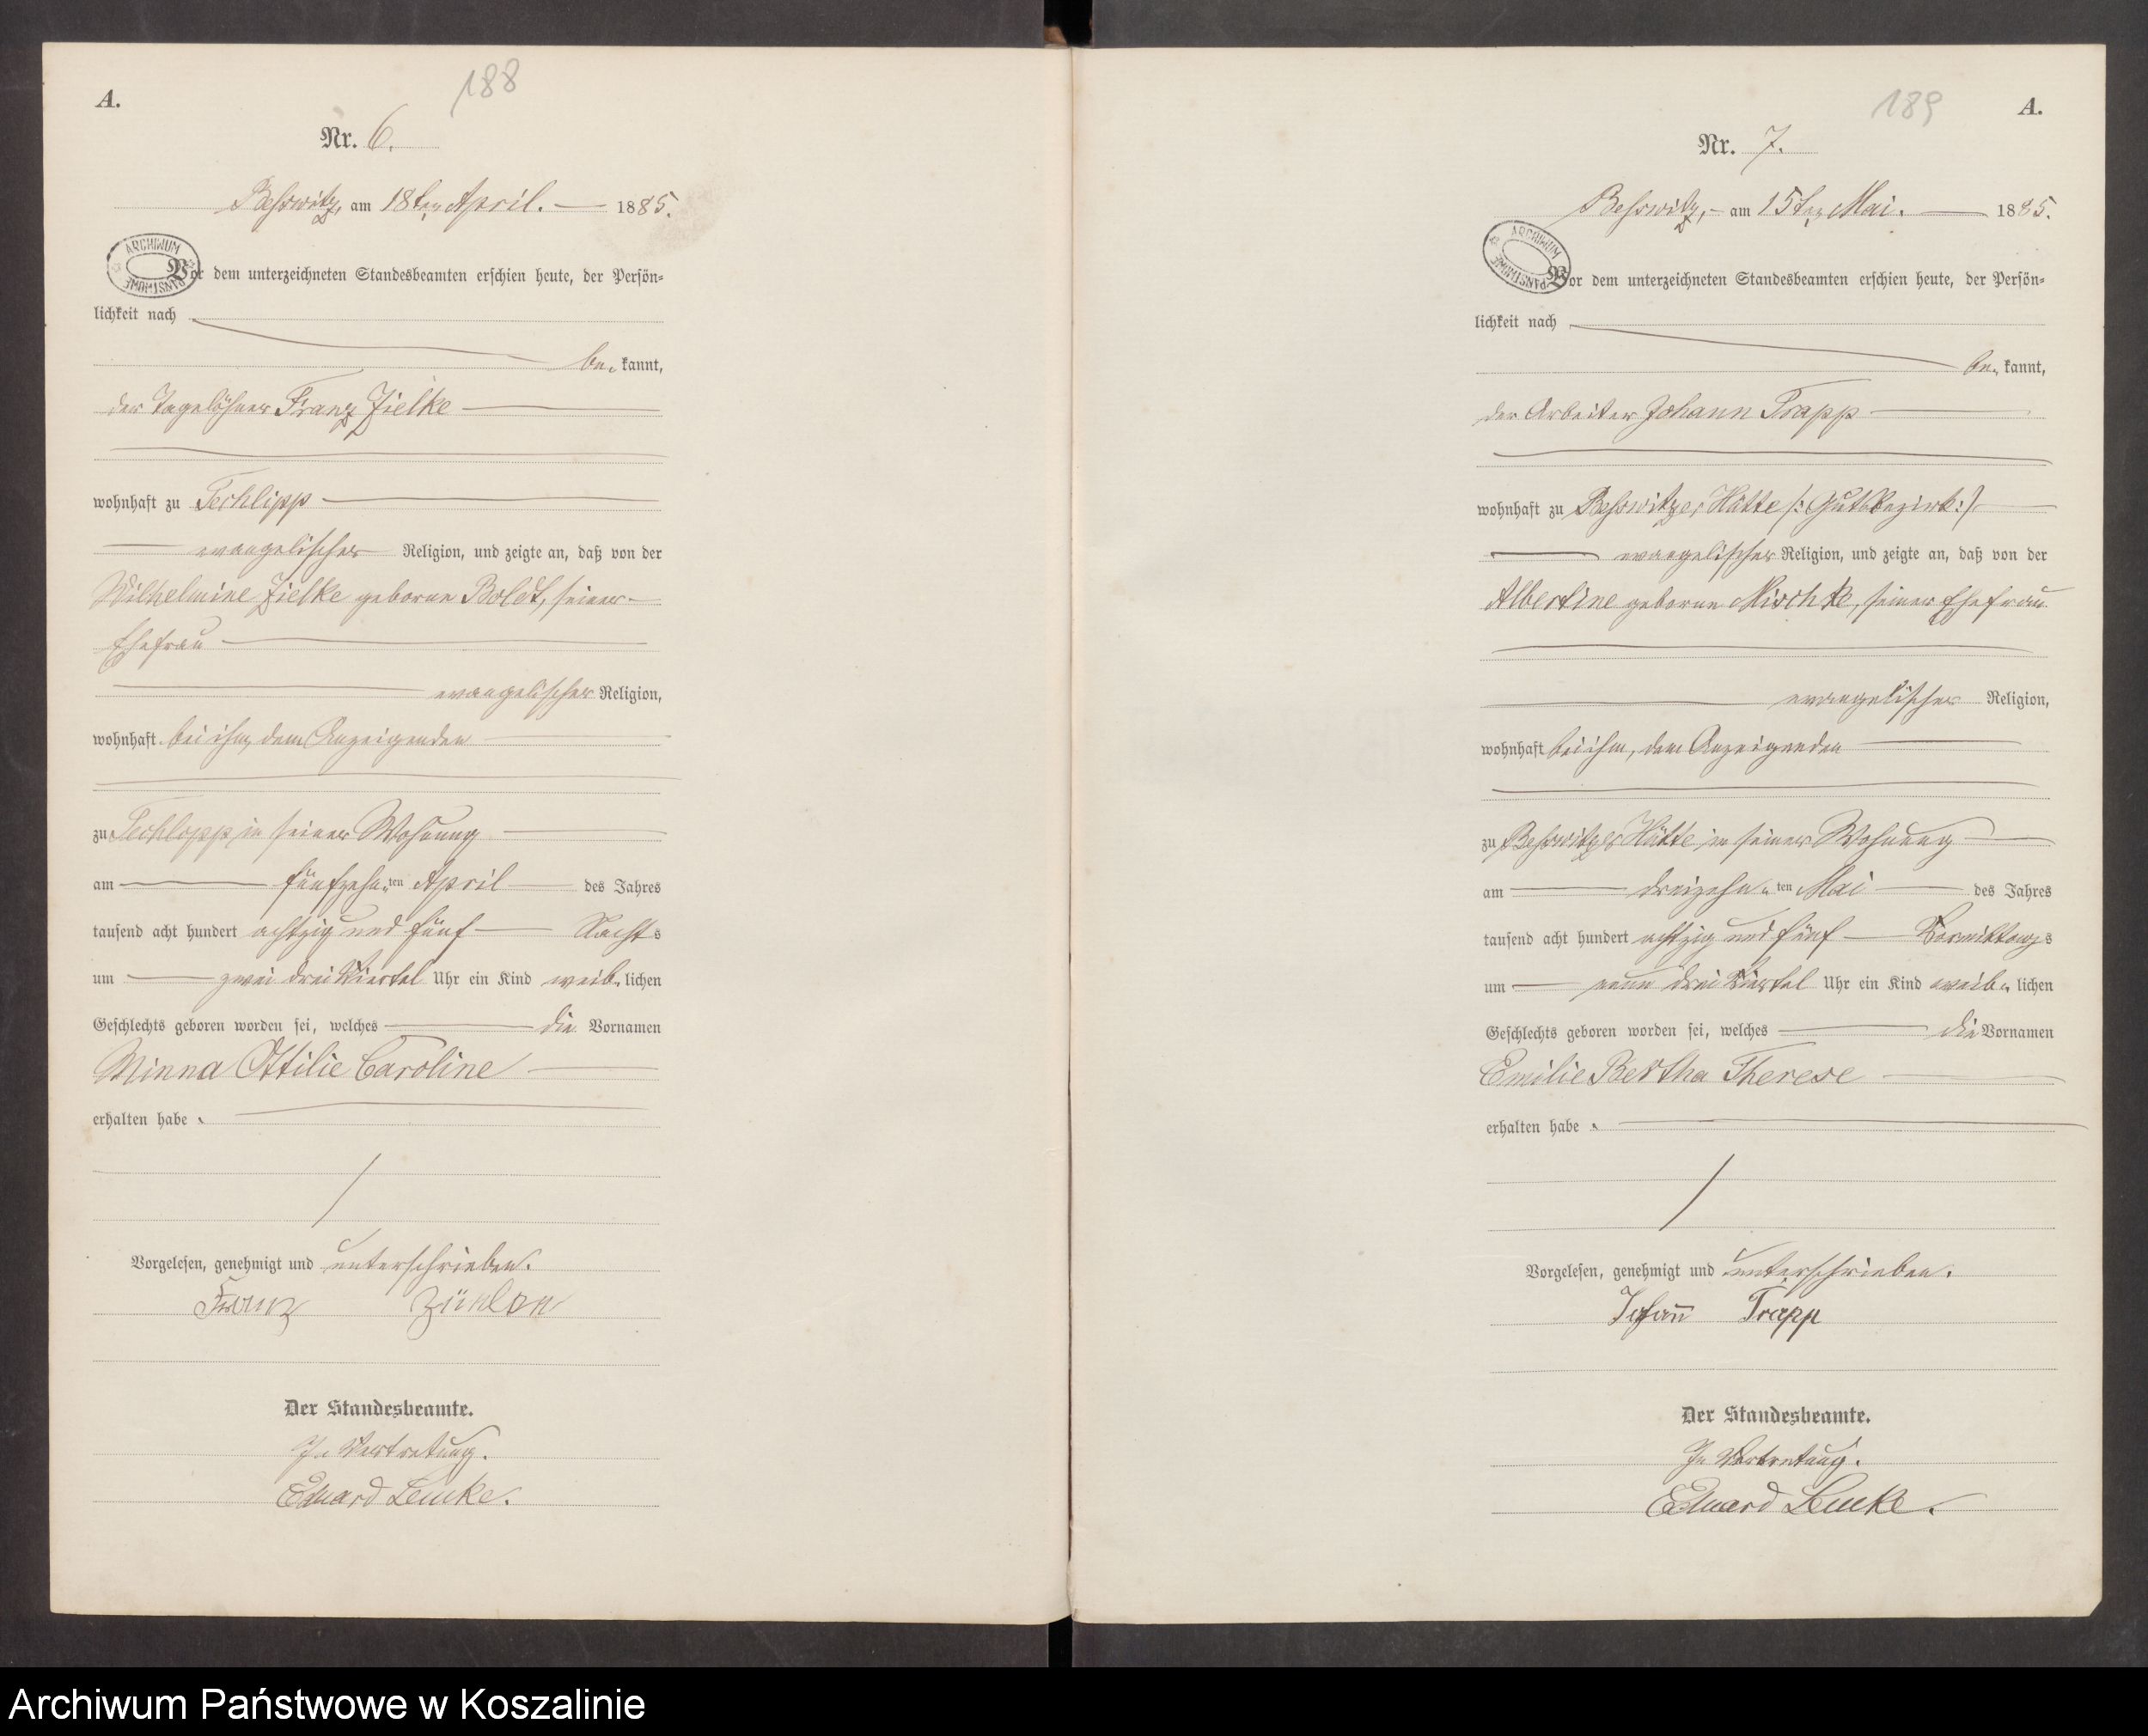 188
A.
Nr. 6.
Beßwitz, am 18ten April. 1885.
ARCHIWUM PAŃSTWOWE
Vor dem unterzeichneten Standesbeamten erschien heute, der Persön-
lichkeit nach
be kannt,
der Tagelöhner Franz Zielke
wohnhaft zu Techlipp
evangelischer Religion, und zeigte an, daß von der
Wilhelmine Zielke geborne Boldt, seiner
Ehefrau
evangelischer Religion,
wohnhaft bei ihm, dem Anzeigenden
zu Techlipp in seiner Wohnung
am fünfzehn ten April des Jahres
tausend acht hundert achtzig und fünf Nacht s
um zwei drei Viertel Uhr ein Kind weib lichen
Geschlechts geboren worden sei, welches die Vornamen
Minna Ottilie Caroline
erhalten habe.
Vorgelesen, genehmigt und unterschrieben.
Franz
Der Standesbeamte.
In Vertretung.
Eduard Lemke.
189
A.
Nr. 7.
Beßwitz, am 15ten Mai. 1885.
ARCHIWUM PAŃSTWOWE
Vor dem unterzeichneten Standesbeamten erschien heute, der Persön-
lichkeit nach
be kannt,
der Arbeiter Johann Trapp
wohnhaft zu Beßwitzer Hütte /: Gutsbezirk :/
evangelischer Religion, und zeigte an, daß von der
Albertine geborne Mischke, seiner Ehefrau
evangelischer Religion,
wohnhaft bei ihm, dem Anzeigenden
zu Beßwitzer Hütte in seiner Wohnung
am dreizehn ten Mai des Jahres
tausend acht hundert achtzig und fünf Vormittag s
um neun drei Viertel Uhr ein Kind weib lichen
Geschlechts geboren worden sei, welches die Vornamen
Emilie Bertha Therese
erhalten habe.
Vorgelesen, genehmigt und unterschrieben.
Johann Trapp
Der Standesbeamte.
In Vertretung.
Eduard Lemke.
Archiwum Państwowe w Koszalinie